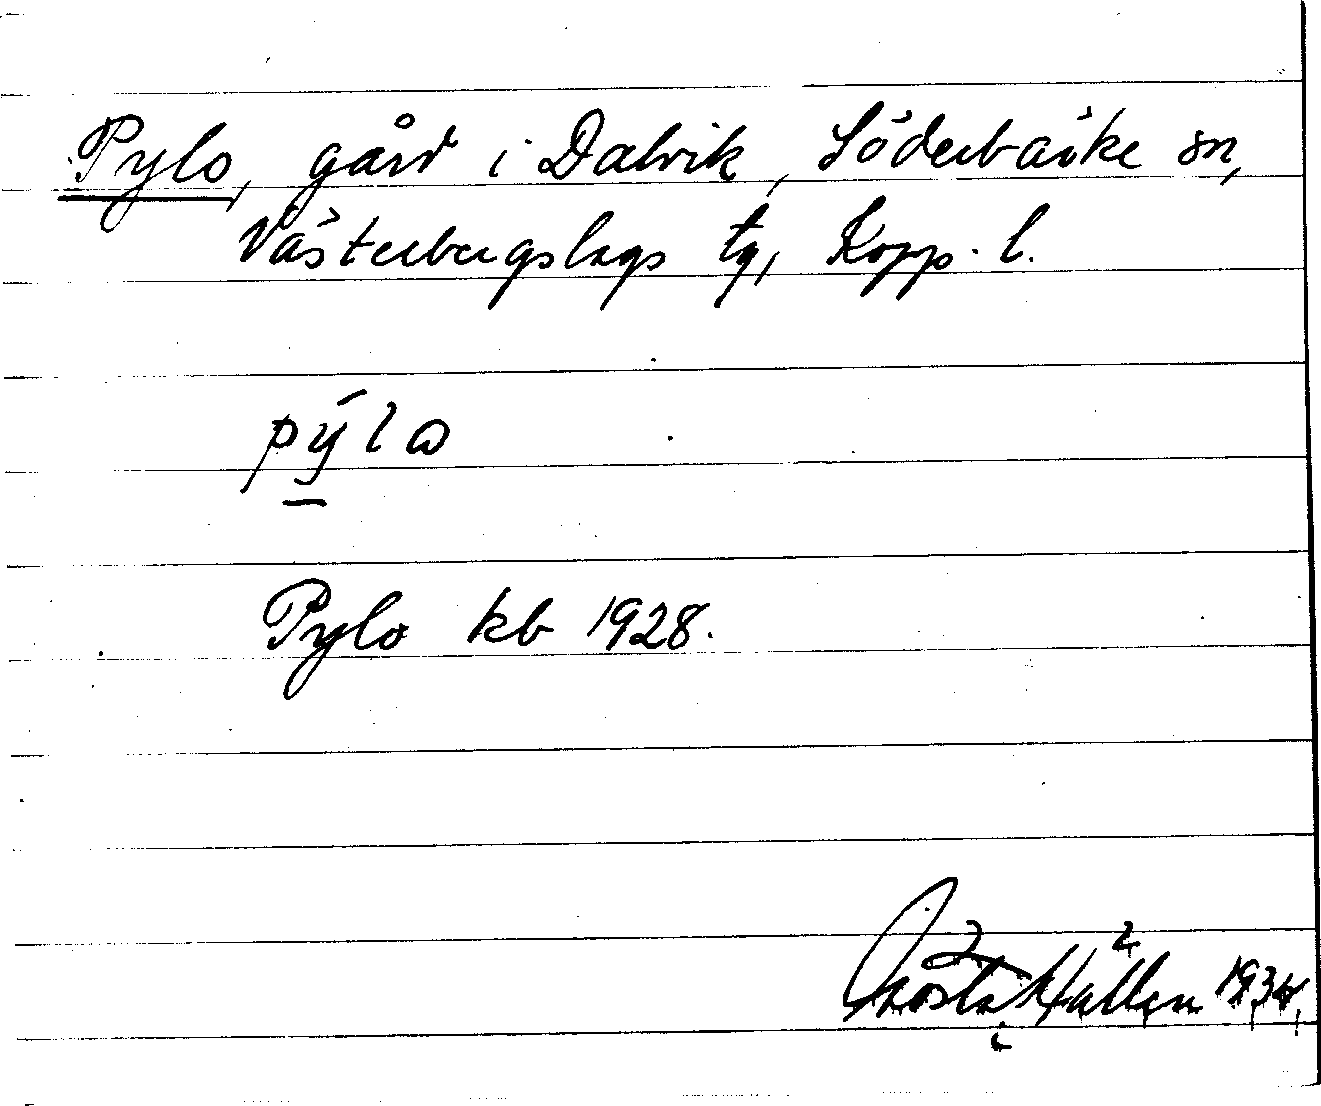 Pylo, gård i Dalvik, Söderbärke sn,
Västerbergslags tg, Kopp. l.
pýlɷ
Pylo kb 1928.
Gösta Hallén 1934.